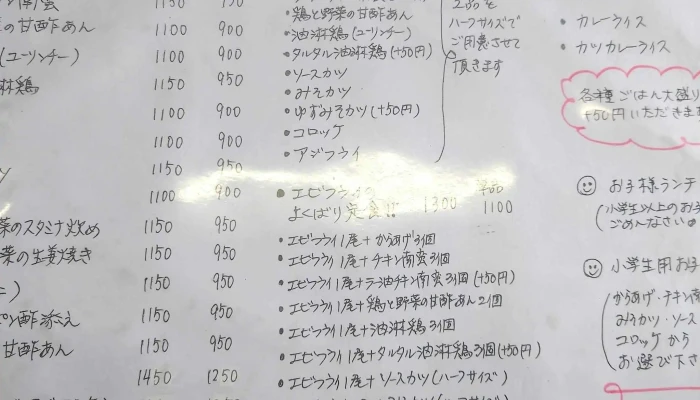 1150 950
の甘酢あん 1100 900
(ユーリンチー) 1100 900
淋鶏 1150 950
1100 900
1100 900
1150 950
1100 900
菜のスタミナ炒め 1150 950
菜の生姜焼き 1150 950
1150 950
ポン酢添え 1150 950
甘酢あん 1150 950
1450 1250
・鶏と野菜の甘酢あん
・油淋鶏(ユーリンチー)
・タルタル油淋鶏(+50円)
・ソースカツ
・みそカツ
・ゆずみそカツ(+50円)
・コロッケ
・アジフライ
2品を
ハーフサイズで
ご用意させて
頂きます
・エビフライの 単品
よくばり定食!! 1300 1100
・エビフライ1尾+からあげ3個
・エビフライ1尾+チキン南蛮3個
・エビフライ1尾+ラー油チキン南蛮3個(+50円)
・エビフライ1尾+鶏と野菜の甘酢あん2個
・エビフライ1尾+油淋鶏3個
・エビフライ1尾+タルタル油淋鶏3個(+50円)
・エビフライ1尾+ソースカツ(ハーフサイズ)
・カレーライス
・カツカレーライス
各種ごはん大盛り
+50円いただきま
お子様ランチ
(小学生以上のお子
ごめんなさい
小学生用お子
からあげ・チキン南
みそカツ・ソース
コロッケから
お選び下さ